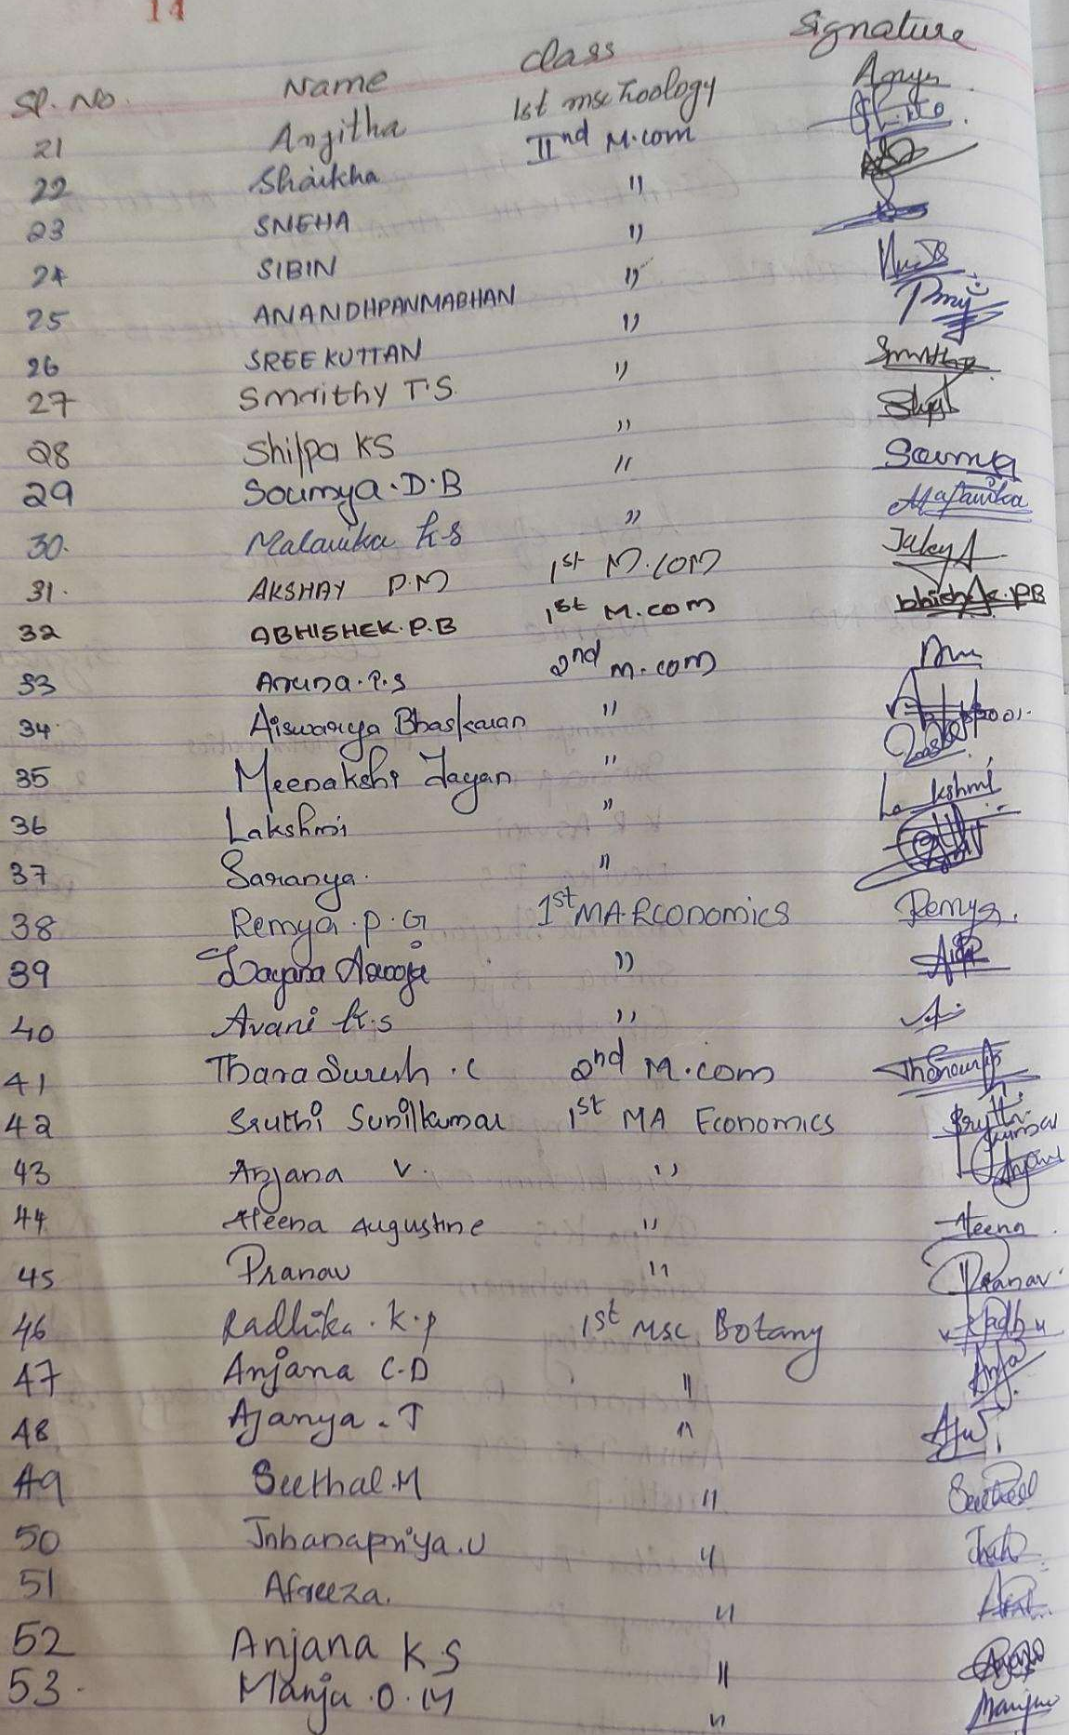 14
Sl. No. Name class Signature
21 Angitha 1st msc Zoology
22 Shaikha IInd M.com
23 SNEHA "
24 SIBIN "
25 ANANDHPANMABHAN "
26 SREEKUTTAN "
27 Smrithy T.S. "
28 Shilpa KS "
29 Soumya.D.B " Soumya
30. Malavika K.S " Malavika
31. AKSHAY P.M 1st M.COM
32 ABHISHEK.P.B 1st M.com bhishek.PB
33 Aruna.P.S 2nd M.com Anu
34. Aiswarya Bhaskaran "
35 Meenakshi Jayan "
36 Lakshmi " Lakshmi
37 Saranya. "
38 Remya.P.G 1st MA.Economics Remya.
39 "
40 Avani K.S "
41 Thara Suresh.C 2nd M.com
42 Sruthi Sunilkumar 1st MA Economics
43 Anjana V. " Anjana
44 Aleena Augustine " Aleena
45 Pranav " Pranav
46 Radhika.K.P 1st Msc Botany
47 Anjana C.D "
48 Ajanya.T "
49 Seethal.M " Seethal
50 Jnhanapriya.U "
51 Afreeza. "
52 Anjana K S "
53. Manju.O.M " Manju